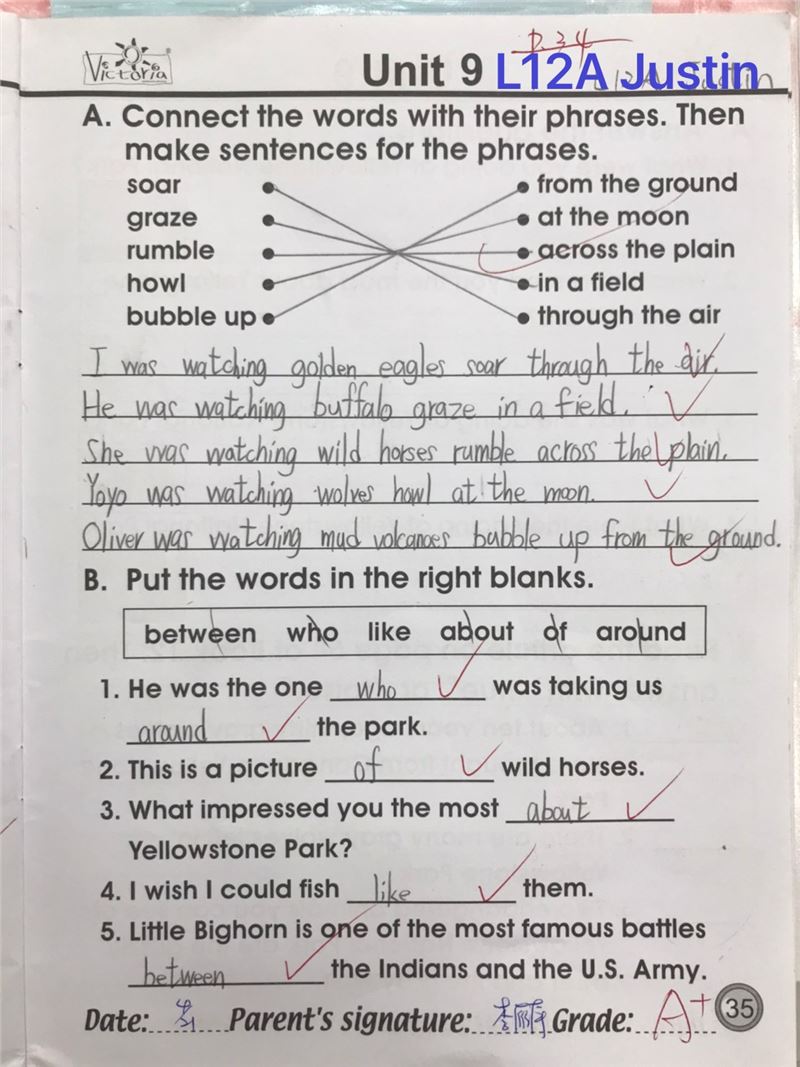 P.34
Victoria
Unit 9 L12A Justin
A. Connect the words with their phrases. Then
make sentences for the phrases.
soar from the ground
graze at the moon
rumble across the plain
howl in a field
bubble up through the air
I was watching golden eagles soar through the air.
He was watching buffalo graze in a field.
She was watching wild horses rumble across the plain.
Yoyo was watching wolves howl at the moon.
Oliver was watching mud volcanoes bubble up from the ground.
B. Put the words in the right blanks.
between who like about of around
1. He was the one who was taking us
around the park.
2. This is a picture of wild horses.
3. What impressed you the most about
Yellowstone Park?
4. I wish I could fish like them.
5. Little Bighorn is one of the most famous battles
between the Indians and the U.S. Army.
Date: Parent's signature: Grade: A+ 35